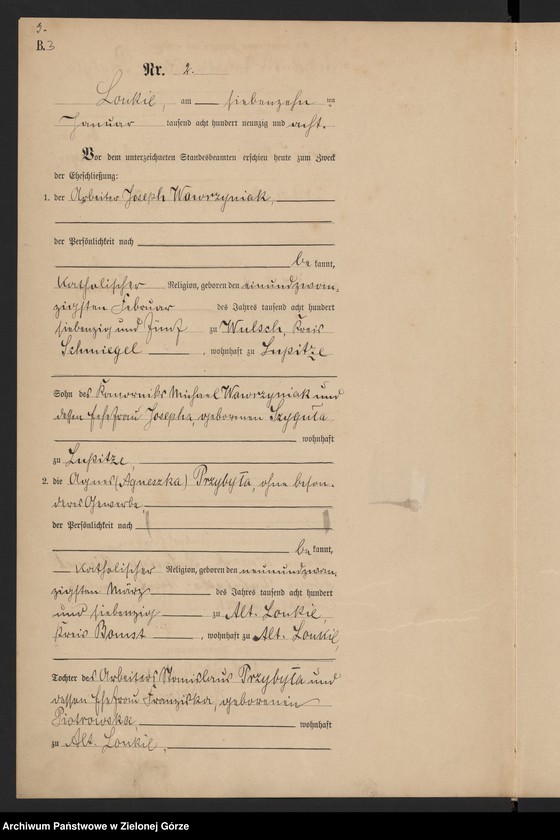 3.
B. 3
Nr. 2.
Lonkie, am siebenzehn ten
Januar tausend acht hundert neunzig und acht.
Vor dem unterzeichneten Standesbeamten erschien heute zum Zweck
der Eheschließung:
1. der Arbeiter Joseph Wawrzyniak,
der Persönlichkeit nach
be kannt,
katholischer Religion, geboren den einundzwan-
zigsten Februar des Jahres tausend acht hundert
siebenzig und fünf zu Wulsch, Kreis
Schmiegel, wohnhaft zu Lupitze
Sohn des Komorniks Michael Wawrzyniak und
dessen Ehefrau Josepha, geborenen Szyguła
wohnhaft
zu Lupitze,
2. die Agnes (Agneszka) Przybyła, ohne beson-
deres Gewerbe,
der Persönlichkeit nach
be kannt,
katholischer Religion, geboren den neunundzwan-
zigsten März des Jahres tausend acht hundert
und siebenzig zu Alt. Lonkie,
Kreis Bomst, wohnhaft zu Alt. Lonkie,
Tochter des Arbeiters Stanislaus Przybyła und
dessen Ehefrau Franziska, geborenen
Piotrowska, wohnhaft
zu Alt. Lonkie,
Archiwum Państwowe w Zielonej Górze